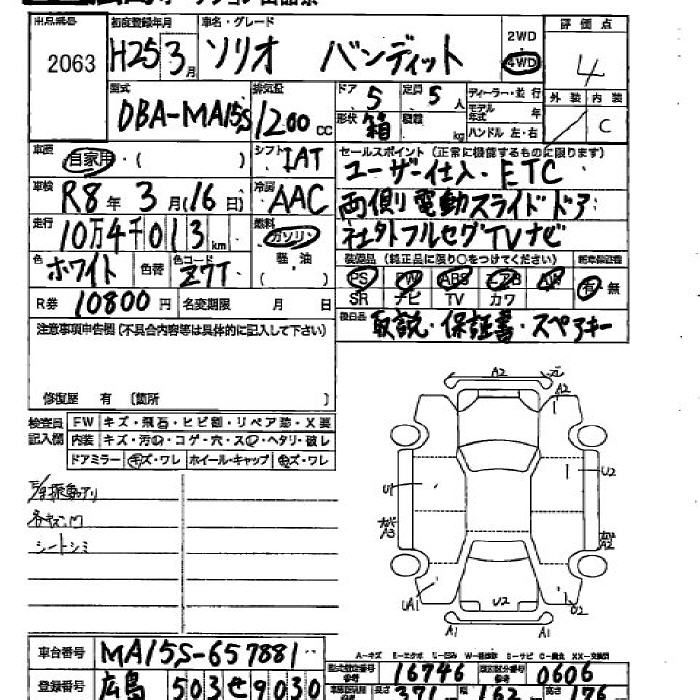 出品番号 2063
初度登録年月 H25 3月
車名・グレード ソリオ バンディット
2WD 4WD
評価点 4
外装 内装 C
型式 DBA-MA15S
排気量 1200 cc
ドア 5 定員 5人
形状 箱 積載 kg
ディーラー・並行
モデル年式 年
ハンドル 左・右
車歴 自家用・( )
シフト IAT
車検 R8年 3月(16日)
冷房 AAC
走行 10万4千013km
燃料 ガソリン 軽油 ( )
色 ホワイト 色替 色コード Z7T
R券 10800円 名変期限 月 日
セールスポイント (正常に機能するものに限ります)
ユーザー仕入・ETC
両側電動スライドドア
社外フルセグTVナビ
装備品 (純正品に限り○をつけてください) 新車保証書
PS PW ABS エアB AW 有・無
SR ナビ TV カワ
後日品 取説・保証書・スペアキー
注意事項申告欄 (不具合内容等は具体的に記入して下さい)
修復歴 有 〔箇所 〕
検査員記入欄
FW キズ・飛石・ヒビ割・リペア跡・X要
内装 キズ・汚・コゲ・穴・ス・ヘタリ・破レ
ドアミラー キズ・ワレ ホイール・キャップ キズ・ワレ
シートシミ
A2
A2
U2
U1
A3
A2
UA1
U2
A1 A1
A-キズ
車台番号 MA15S-657881
登録番号 広島 503 せ 9030
型式指定番号 16746 類別区分番号 0606
長さ 371